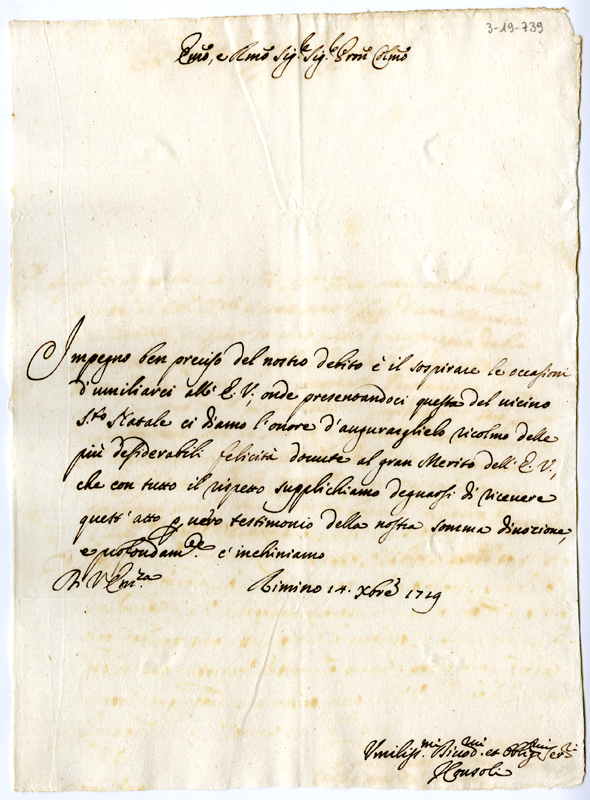 3-19-739
Emo, e Rmo Sig.re Sig.re Pron Colmo
Impegno ben preciso del nostro debito è il sospirare le occasioni
d'umiliarci all' E. V., onde presentandoci questa del vicino
S.to Natale ci diamo l'onore d'augurarglielo ricolmo delle
più desiderabili felicità dovute al gran Merito dell' E. V.,
che con tutto il rispetto supplichiamo degnarsi di ricevere
quest' atto p vero testimonio della nostra somma divozione,
e profondam.te c'inchiniamo
Di V. Em.za Rimino 14. Xbre 1719
Umiliss.mi Divod.mi et Obblig.mi Ser.i
Consoli